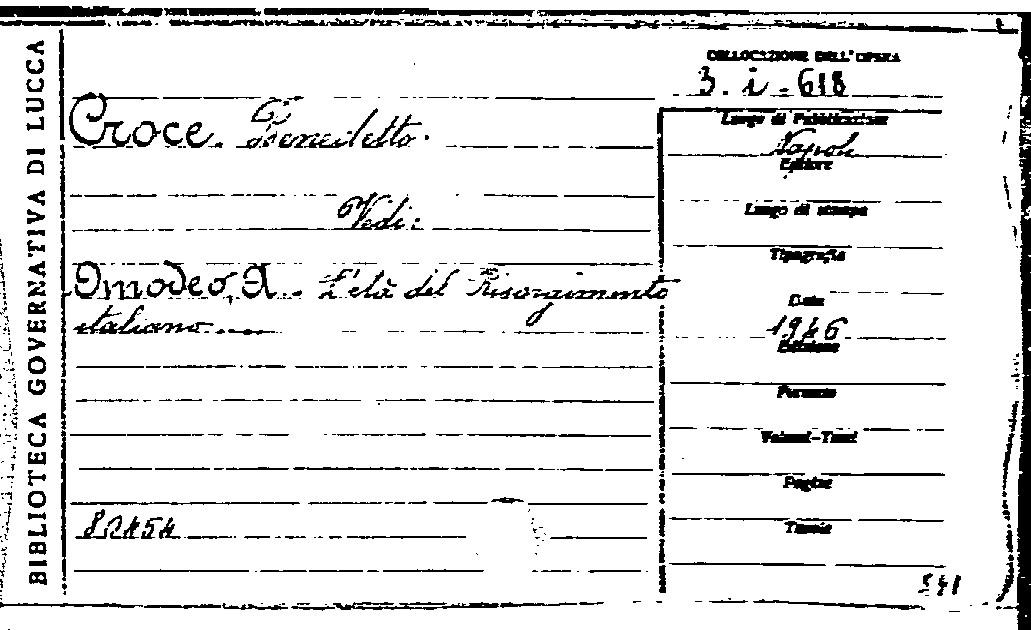 BIBLIOTECA GOVERNATIVA DI LUCCA
COLLOCAZIONE DELL'OPERA
3. i - 618
Croce. Benedetto.
Luogo di Pubblicazione
Napoli
Editore
Vedi:
Luogo di stampa
Tipografia
Omodeo, A. - L'età del Risorgimento
italiano....
Data
1946
Edizione
Formato
Volumi-Tomi
Pagine
Tavole
82454
541